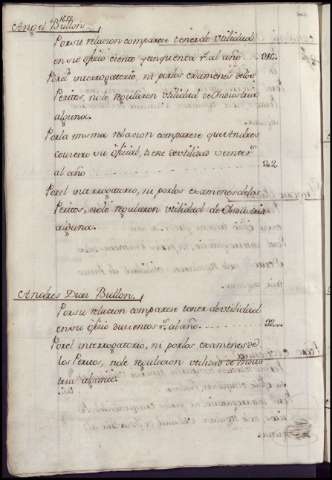 Angel Bullon
Por su relacion comparece tener de vtilidad
en su oficio ciento y cinquenta rs. al año . . . 150..
Por el interrogatorio, ni por los examenes de los
Peritos, no le regularon vtilidad de Industria
alguna.
Por la misma relacion comparece que
como su oficial, tiene de vtilidad
al año . . . . . . . . . . . .
Por el interrogatorio, ni por los examenes de los
Peritos, no le regularon vtilidad de Industria
alguna.
Andres Diaz Bullon
Por su relacion comparece tener de vtilidad
en su oficio duzientos rs. al año . . . . . . 200..
Por el interrogatorio, ni por los examenes de
los Peritos, no le regularon vtilidad de Indus
tria alguna.